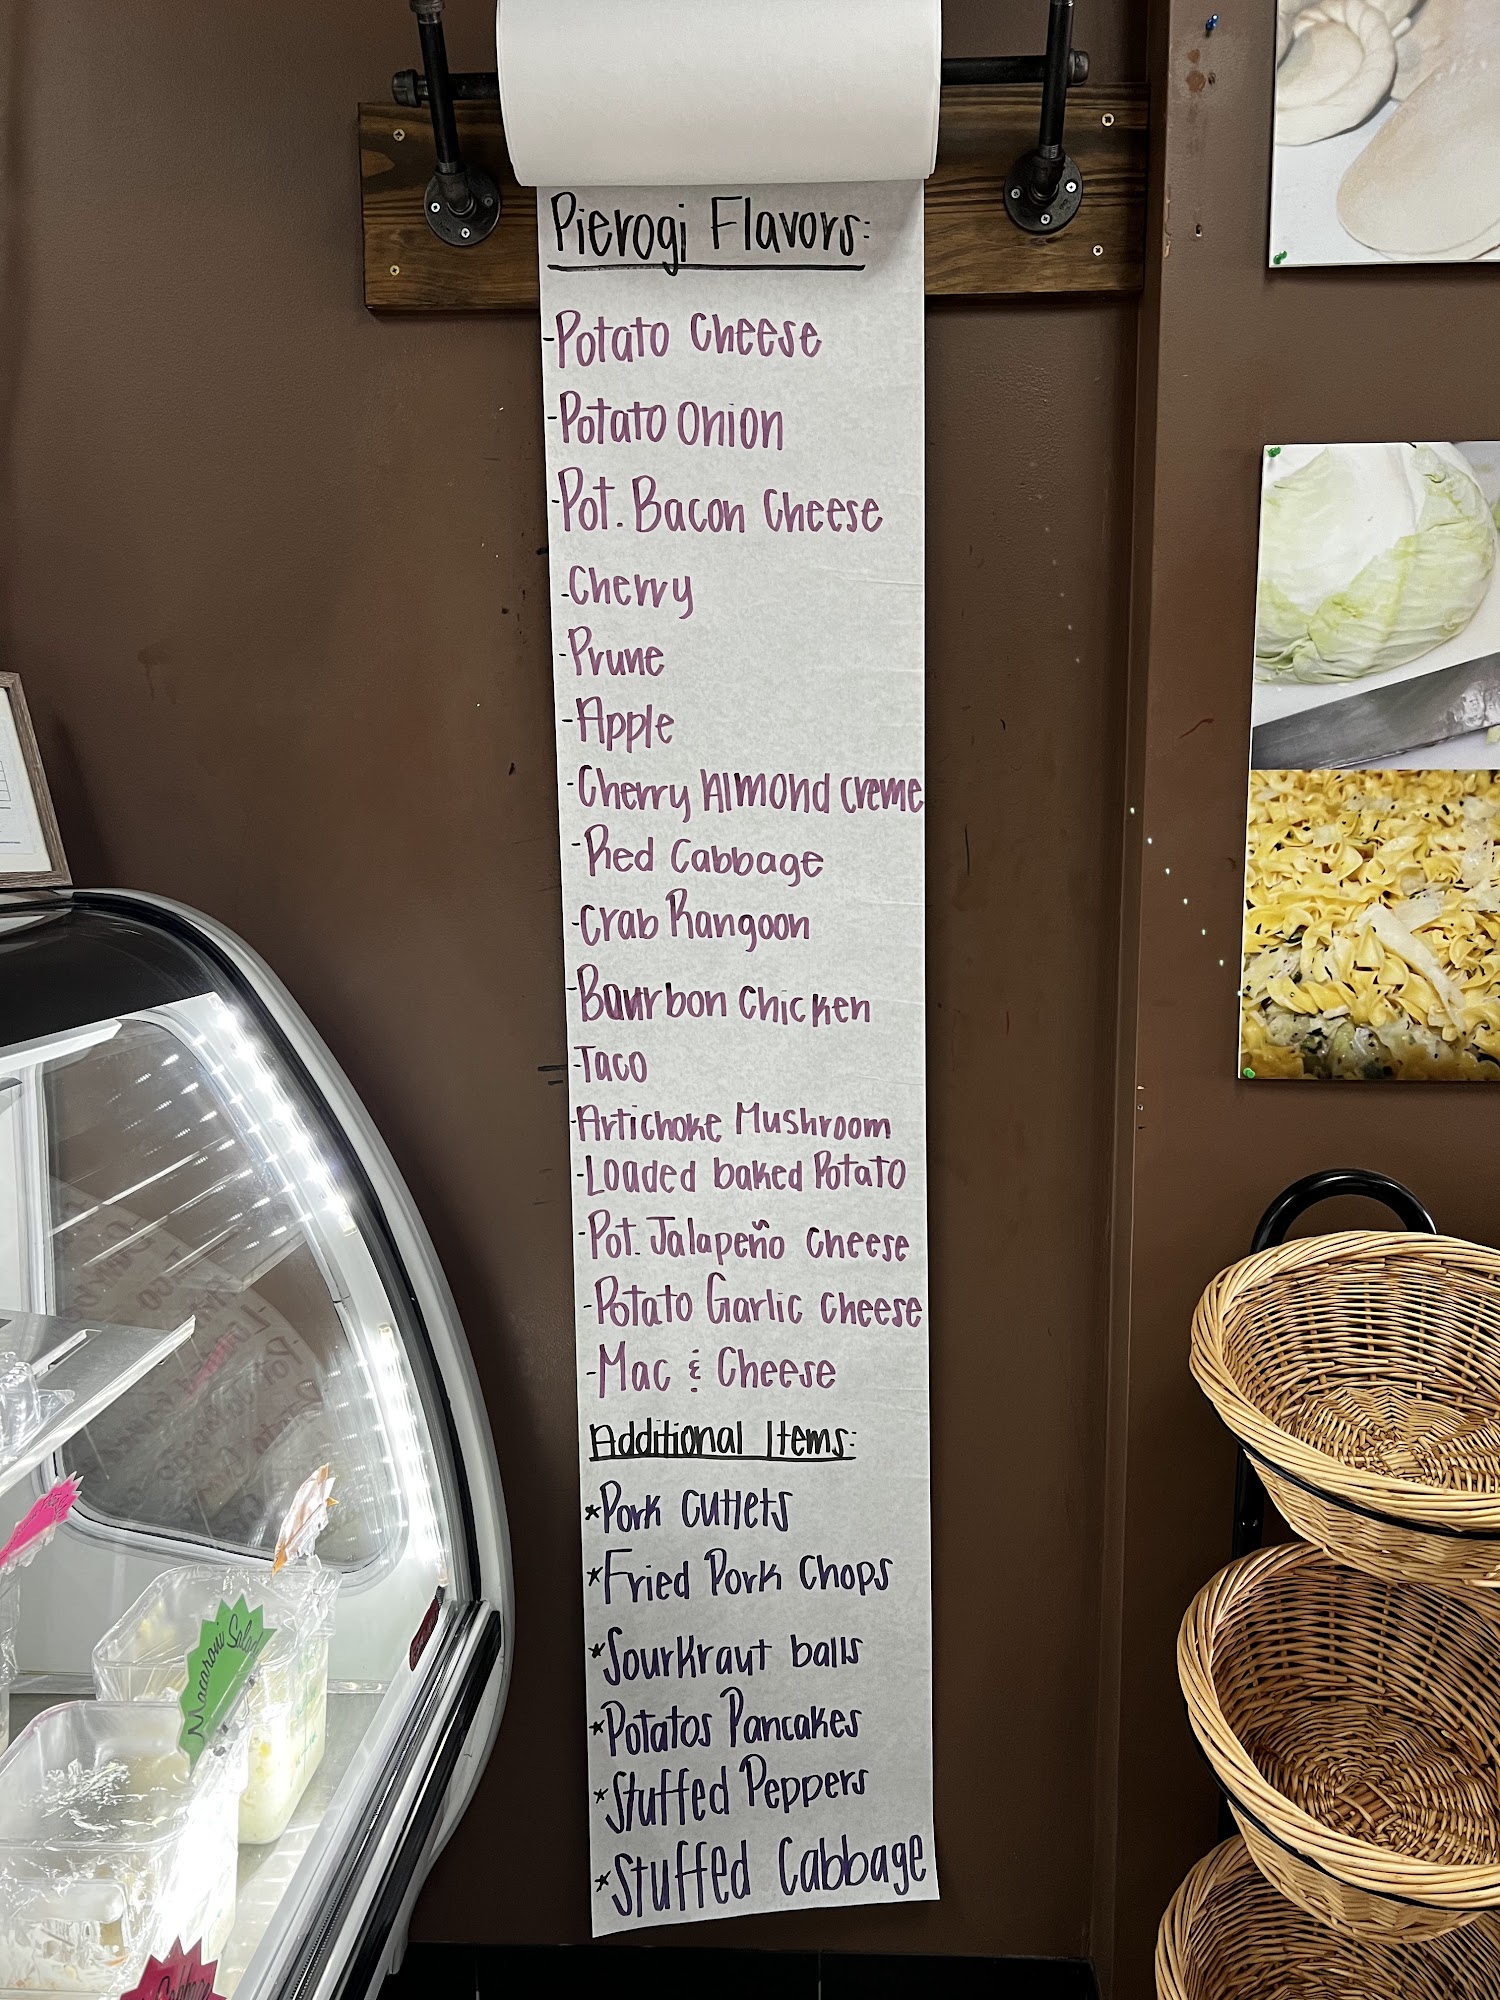 Pierogi Flavors:
-Potato Cheese
-Potato Onion
-Pot. Bacon Cheese
-Cherry
-Prune
-Apple
-Cherry Almond Creme
-Red Cabbage
-Crab Rangoon
-Bourbon Chicken
-Taco
-Artichoke Mushroom
-Loaded baked Potato
-Pot. Jalapeño Cheese
-Potato Garlic Cheese
-Mac & Cheese
Additional Items:
*Pork Cutlets
*Fried Pork Chops
*Sourkraut balls
*Potatos Pancakes
*Stuffed Peppers
*Stuffed Cabbage
Macaroni Salad
Cabbage